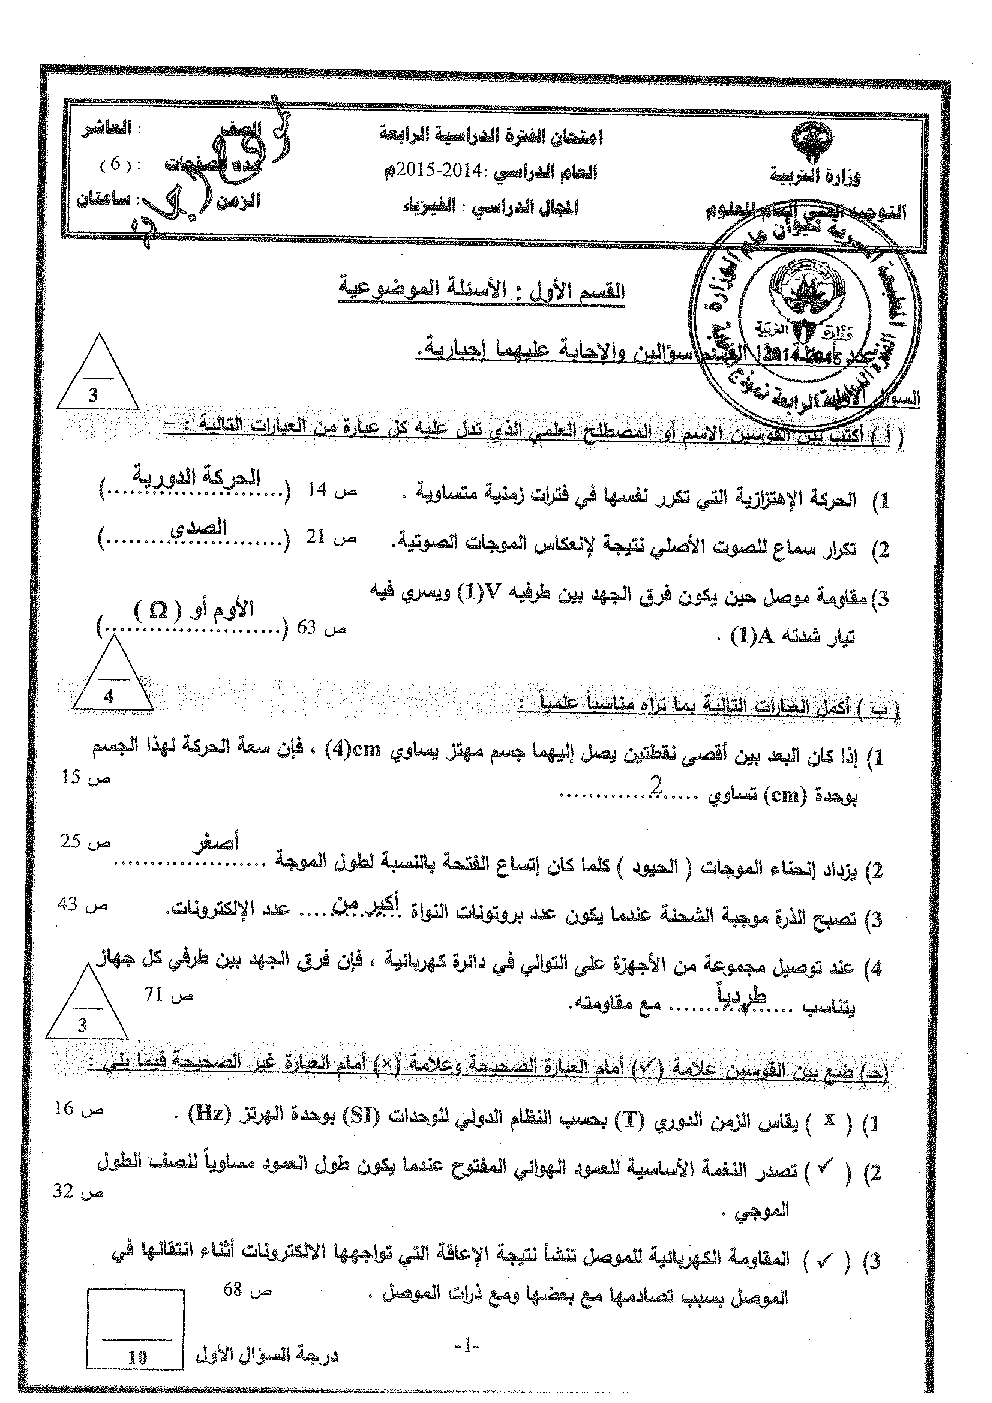 وزارة التربية
التوجيه الفني العام للعلوم
امتحان الفترة الدراسية الرابعة
العام الدراسي :2014-2015م
المجال الدراسي : الفيزياء
الصف : العاشر
عدد الصفحات : ( 6 )
الزمن : ساعتان
القسم الأول : الأسئلة الموضوعية
سؤالين والإجابة عليهما إجبارية.
وزارة التربية
3
( أ ) أكتب بين القوسين الاسم أو المصطلح العلمي الذي تدل عليه كل عبارة من العبارات التالية : –
1) الحركة الإهتزازية التي تكرر نفسها في فترات زمنية متساوية . ص 14 (الحركة الدورية)
2) تكرار سماع للصوت الأصلي نتيجة لإنعكاس الموجات الصوتية. ص 21 (الصدى)
3) مقاومة موصل حين يكون فرق الجهد بين طرفيه V(1) ويسري فيه
تيار شدته A(1) . ص 63 (الأوم أو ( Ω ))
4
( ب ) أكمل العبارات التالية بما تراه مناسبا علمياً :
1) إذا كان البعد بين أقصى نقطتين يصل إليهما جسم مهتز يساوي cm(4) ، فإن سعة الحركة لهذا الجسم
بوحدة (cm) تساوي ......2...... ص 15
2) يزداد إنحناء الموجات ( الحيود ) كلما كان إتساع الفتحة بالنسبة لطول الموجة ......أصغر...... ص 25
3) تصبح الذرة موجبة الشحنة عندما يكون عدد بروتونات النواة ...أكبر من... عدد الإلكترونات. ص 43
4) عند توصيل مجموعة من الأجهزة على التوالي في دائرة كهربائية ، فإن فرق الجهد بين طرفي كل جهاز
يتناسب ...طردياً... مع مقاومته. ص 71
3
(جـ) ضع بين القوسين علامة (✓) أمام العبارة الصحيحة وعلامة (×) أمام العبارة غير الصحيحة فيما يلي :
1) ( x ) يقاس الزمن الدوري (T) بحسب النظام الدولي للوحدات (SI) بوحدة الهرتز (Hz) . ص 16
2) ( ✓ ) تصدر النغمة الأساسية للعمود الهوائي المفتوح عندما يكون طول العمود مساوياً لنصف الطول
الموجي . ص 32
3) ( ✓ ) المقاومة الكهربائية للموصل تنشأ نتيجة الإعاقة التي تواجهها الالكترونات أثناء انتقالها في
الموصل بسبب تصادمها مع بعضها ومع ذرات الموصل . ص 68
درجة السؤال الأول
10
-1-